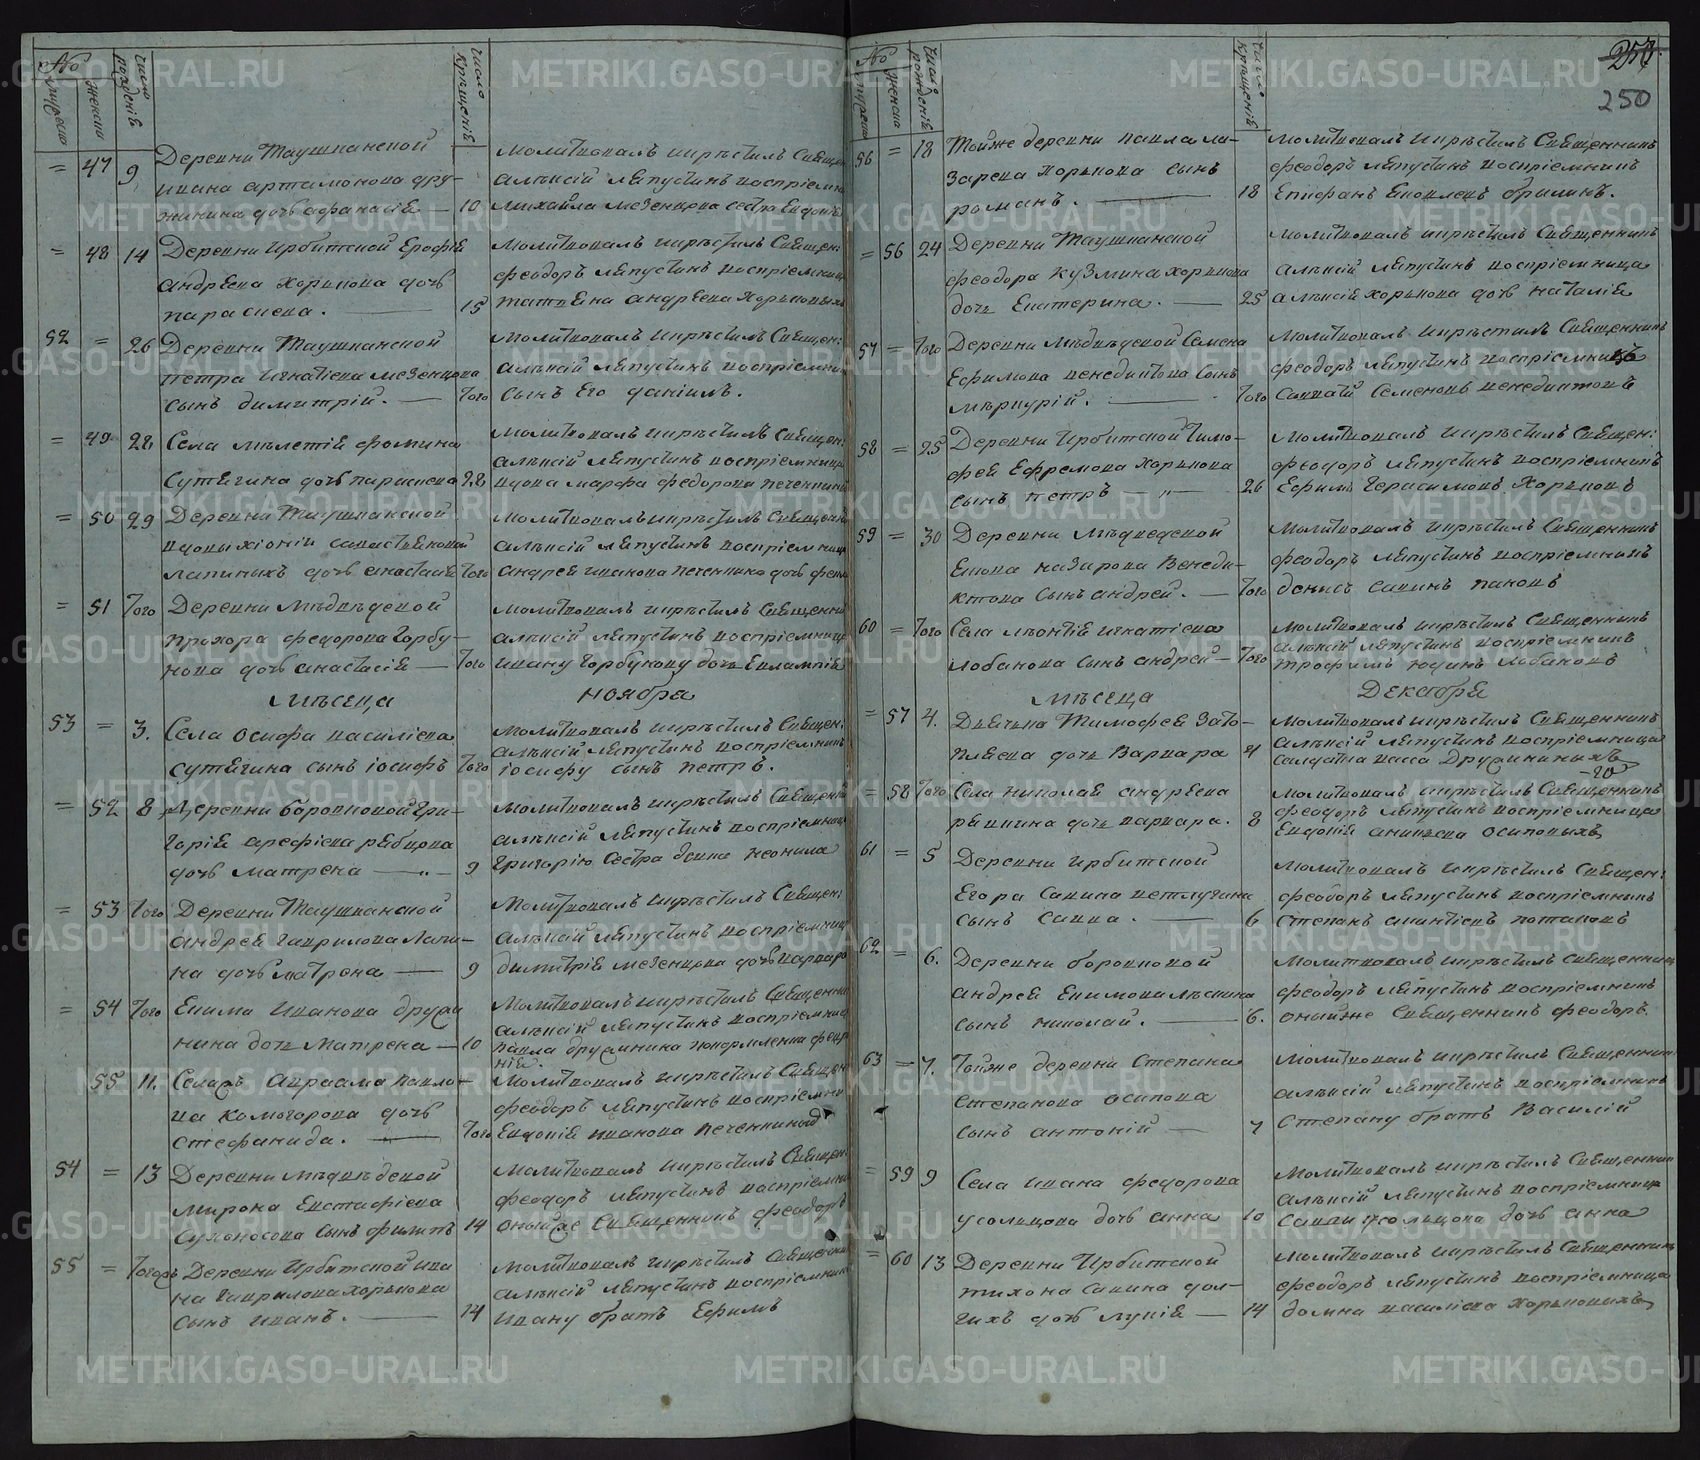 №
мужеска
женска
число рожденiя
число крещенiя
= 47 9 Деревни Таушканской
ивана артамонова дру-
жинина дочь афанасiя — 10
молитвовалъ икрѣстилъ Свящѣн
алѣксiй лѣпустинъ воспрiемни
михайла мезенцова сестра Евдокiя
= 48 14 Деревни Ирбитской Ерофiя
андрѣева хорькова дочь
параскева. — 15
молитвовалъ икрѣстилъ Свящѣн:
феодоръ лѣпустинъ воспрiемница
татiяна андрѣева хорьковыхъ
52 = 26 Деревни Таушканской
петра игнатiева мезенцова
сынъ димитрiй. — Того
молитвовалъ икрѣстилъ Свящѣн:
алѣксiй лѣпустинъ воспрiемни
сынъ Его данiилъ.
= 49 28 Села мѣлетiя фомина
Сутягина дочь параскева 28
молитвовалъ икрѣстилъ Свящѣн:
алѣксiй лѣпустинъ воспрiемница
вдова марфа федорова печенкина
= 50 29 Деревни Таушканской
вдовы хiонiи савастьяновой
лапиныхъ дочь анастасiя Того
молитвовалъ икрѣстилъ Свящѣн
алѣксiй лѣпустинъ воспрiемница
андрея иванова печенкина дочь
= 51 Того Деревни Мѣдвѣдской
прохора федорова горбу-
нова дочь анастасiя — Того
молитвовалъ икрѣстилъ Свящѣнни
алѣксiй лѣпустинъ воспрiемница
ивану горбунову дочь Евлампiя
мѣсеца ноября
53 = 3. Села осифа василiева
сутягина сынъ iосифъ Того
молитвовалъ икрѣстилъ Свящѣн:
алѣксiй лѣпустинъ воспрiемникъ
iосифу сынъ петръ.
= 52 8 Деревни боровиковой гри-
горiя арефiева рябцова
дочь матрена — 9
молитвовалъ икрѣстилъ Свящѣнни
алѣксiй лѣпустинъ воспрiемница
григорiю сестра девка неонила
= 53 Того Деревни Таушканской
андрея гаврилова лапи-
на дочь матрона — 9
молитвовалъ икрѣстилъ Свящѣн:
алѣксiй лѣпустинъ воспрiемница
димитрiя мезенцова дочь варвара
= 54 Того Екима иванова дружи
нина дочь матрена — 10
молитвовалъ икрѣстилъ Свящѣнни
алѣксiй лѣпустинъ воспрiемни
павла дружинина
55 11. Авраама павло-
ва комогорова дочь
стефанида. — Того
молитвовалъ икрѣстилъ Свящѣн
феодоръ лѣпустинъ воспрiемни
Евдокiя иванова печенкиныхъ
54 = 13 Деревни мѣдвѣдской
мирона Евстафiева
Сухоносова сынъ филипъ 14
молитвовалъ икрѣстилъ Свящѣн
феодоръ лѣпустинъ воспрiемни
оныйже Свящѣнникъ феодоръ
55 = Деревни Ирбитской ива
на гаврилова хорькова
сынъ иванъ. — 14
молитвовалъ икрѣстилъ Свящѣнни
алѣксiй лѣпустинъ воспрiемникъ
ивану братъ Ефимъ
250
№
мужеска
женска
число рожденiй
число крещенiй
56 = 18 Тойже деревни павла ла-
зарева хорькова сынъ
романъ. — 18
молитвовалъ икрѣстилъ Свящѣнникъ
феодоръ лѣпустинъ воспрiемникъ
Епифанъ Яковлевъ брилинъ.
= 56 24 Деревни Таушканской
феодора кузмина хорькова
дочь Екатерина. — 25
молитвовалъ икрѣстилъ Свящѣнникъ
алѣксiй лѣпустинъ воспрiемница
алѣксiя хорькова дочь наталiя
57 = Того Деревни мѣдвѣдской Семена
Ефимова венедиктова сынъ
мѣркурiй. — Того
молитвовалъ икрѣстилъ Свящѣнникъ
феодоръ лѣпустинъ воспрiемникъ
Савватiй Семеновъ венедиктовъ
58 = 25 Деревни Ирбитской тимо-
фея Ефремова хорькова
сынъ петръ — 26
молитвовалъ икрѣстилъ Свящѣн:
феодоръ лѣпустинъ воспрiемникъ
Ефимъ герасимовъ хорьковъ
59 = 30 Деревни мѣдведской
Якова назарова Венеди-
ктова сынъ андрей. — Того
молитвовалъ икрѣстилъ Свящѣнникъ
феодоръ лѣпустинъ воспрiемникъ
денисъ савинъ пановъ
60 = Того Села лѣонтiя игнатiева
лобанова сынъ андрей — Того
молитвовалъ икрѣстилъ Свящѣнникъ
алѣксiй лѣпустинъ воспрiемникъ
трофимъ юдинъ лобановъ
мѣсеца Декабря
= 57 4. Дьячька Тимофея Зато-
пляева дочь Варвара 4
молитвовалъ икрѣстилъ Свящѣнникъ
алѣксiй лѣпустинъ воспрiемница
солдатка васса Дружининыхъ
= 58 Того Села николая андрѣева
рявкина дочь варвара. 8
молитвовалъ икрѣстилъ Свящѣнникъ
феодоръ лѣпустинъ воспрiемница
Евдокiя аникiева осиповыхъ
61 = 5 Деревни ирбитской
Егора савина петлугина
сынъ савва. — 6
молитвовалъ икрѣстилъ Свящѣн:
феодоръ лѣпустинъ воспрiемникъ
степанъ акинтiевъ потаповъ
62 = 6. Деревни боровиковой
андрея Екимова
сынъ николай. — 6.
молитвовалъ икрѣстилъ Свящѣнникъ
феодоръ лѣпустинъ воспрiемникъ
оныйже Свящѣнникъ феодоръ.
63 = 7. Тойже деревни Степана
степанова осипова
сынъ антонiй — 7
молитвовалъ икрѣстилъ Свящѣнникъ
алѣксiй лѣпустинъ воспрiемникъ
степану братъ Василiй
= 59 9 Села ивана федорова
усольцова дочь анна 10
молитвовалъ икрѣстилъ Свящѣнник
алѣксiй лѣпустинъ воспрiемница
саввы усольцова дочь анна
= 60 13 Деревни Ирбитской
тихона Савина дол-
гихъ дочь лукiя — 14
молитвовалъ икрѣстилъ Свящѣнникъ
феодоръ лѣпустинъ воспрiемница
домна василiева хорьковыхъ
METRIKI.GASO-URAL.RU